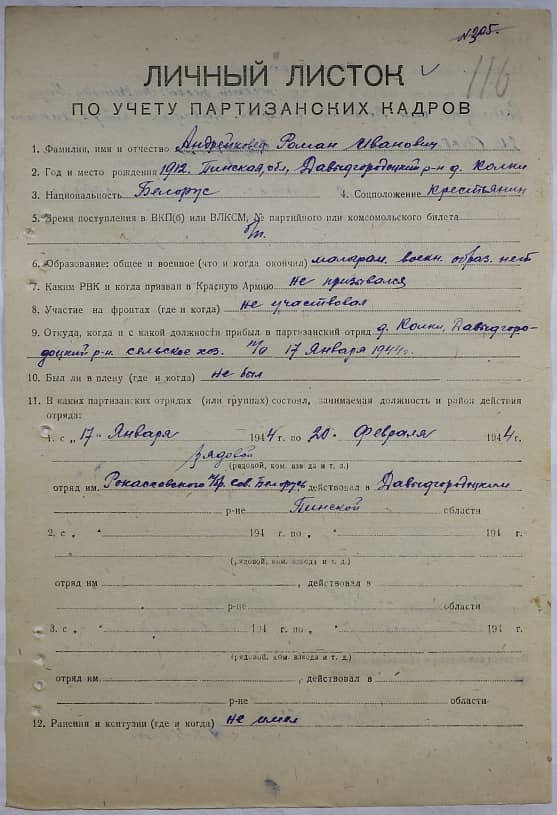 №305.
116
ЛИЧНЫЙ ЛИСТОК
ПО УЧЕТУ ПАРТИЗАНСКИХ КАДРОВ
1. Фамилия, имя и отчество Андрейковец Роман Иванович
2. Год и место рождения 1912. Пинская, обл, Давыдгородоцкий р-н д. Колки
3. Национальность Белорус 4. Соцположение Крестьянин
5. Время поступления в ВКП(б) или ВЛКСМ, № партийного или комсомольского билета
б/п.
6. Образование: общее и военное (что и когда окончил) малограм. военн. образ. нет
7. Каким РВК и когда призван в Красную Армию не призывался
8. Участие на фронтах (где и когда) не участвовал
9. Откуда, когда и с какой должности прибыл в партизанский отряд д. Колки, Давыдгоро-
доцкий р-н. сельское хоз. п/о 17 Января 1944г.
10. Был ли в плену (где и когда) не был
11. В каких партизанских отрядах (или группах) состоял, занимаемая должность и район действия
отряда:
1. с „17" Января 1944 г. по 20. Февраля 1944 г.
рядовой
(рядовой, ком. взвода и т. д.)
отряд им. п/бр. Сов. Белорусь действовал в Давыдгородоцким
р-не Пинской области
2. с „ " 194 г. по „ " 194 г.
(рядовой, ком. взвода и т. д.)
отряд им , действовал в
р-не области
3. с „ " 194 г. по „ " 194 г.
(рядовой, ком. взвода и т. д.)
отряд им. , действовал в
р-не области
12. Ранения и контузии (где и когда) не имел